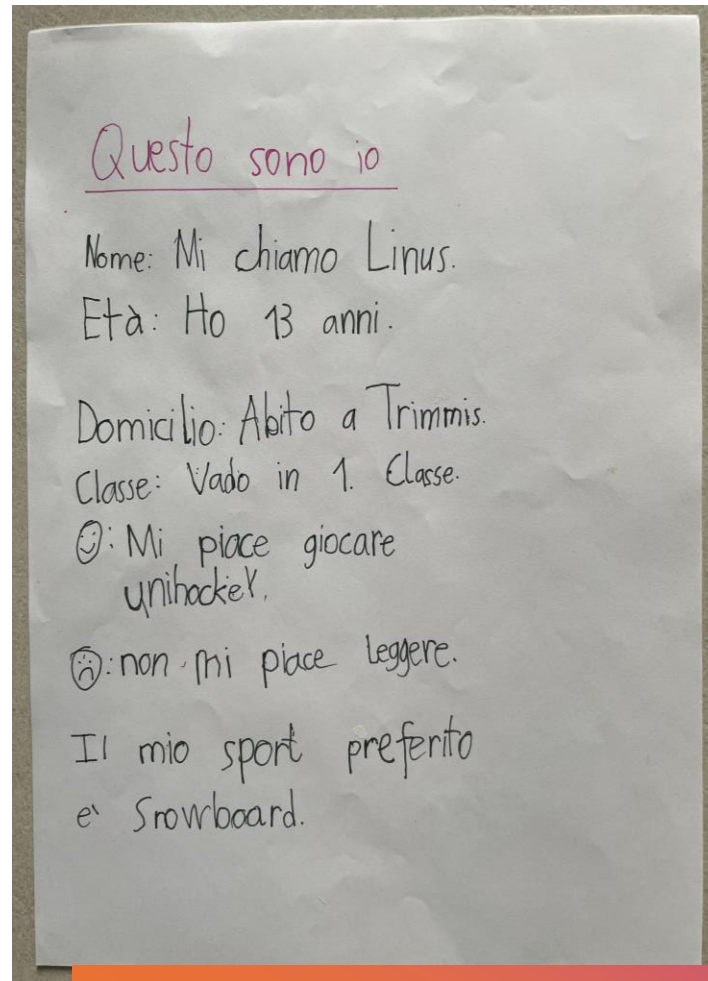 Questo sono io
Nome: Mi chiamo Linus.
Età: Ho 13 anni.
Domicilio: Abito a Trimmis.
Classe: Vado in 1. Classe.
☺: Mi piace giocare
unihockey.
☹: non mi piace leggere.
Il mio sport preferito
e` Snowboard.